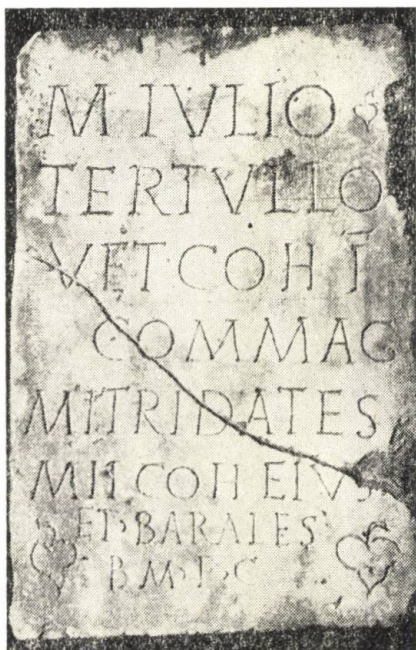 M IVLIO
TERTVLLO
VET COH Ī
COMMAG
MITRIDATES
MIL COH EIVS
ET BARALES
B M F C